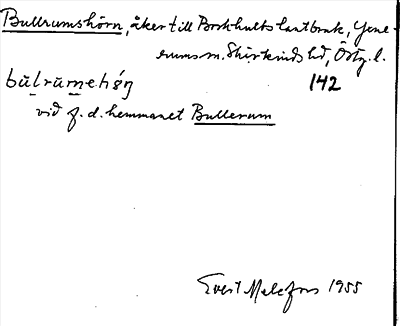 Bullrumshörn, åker till Borkhults lantbruk, Yxne-
rums sn. Skärkinds hd, Östg. l.
142
vid f. d. hemmanet Bullerum
Evert Melefors 1955